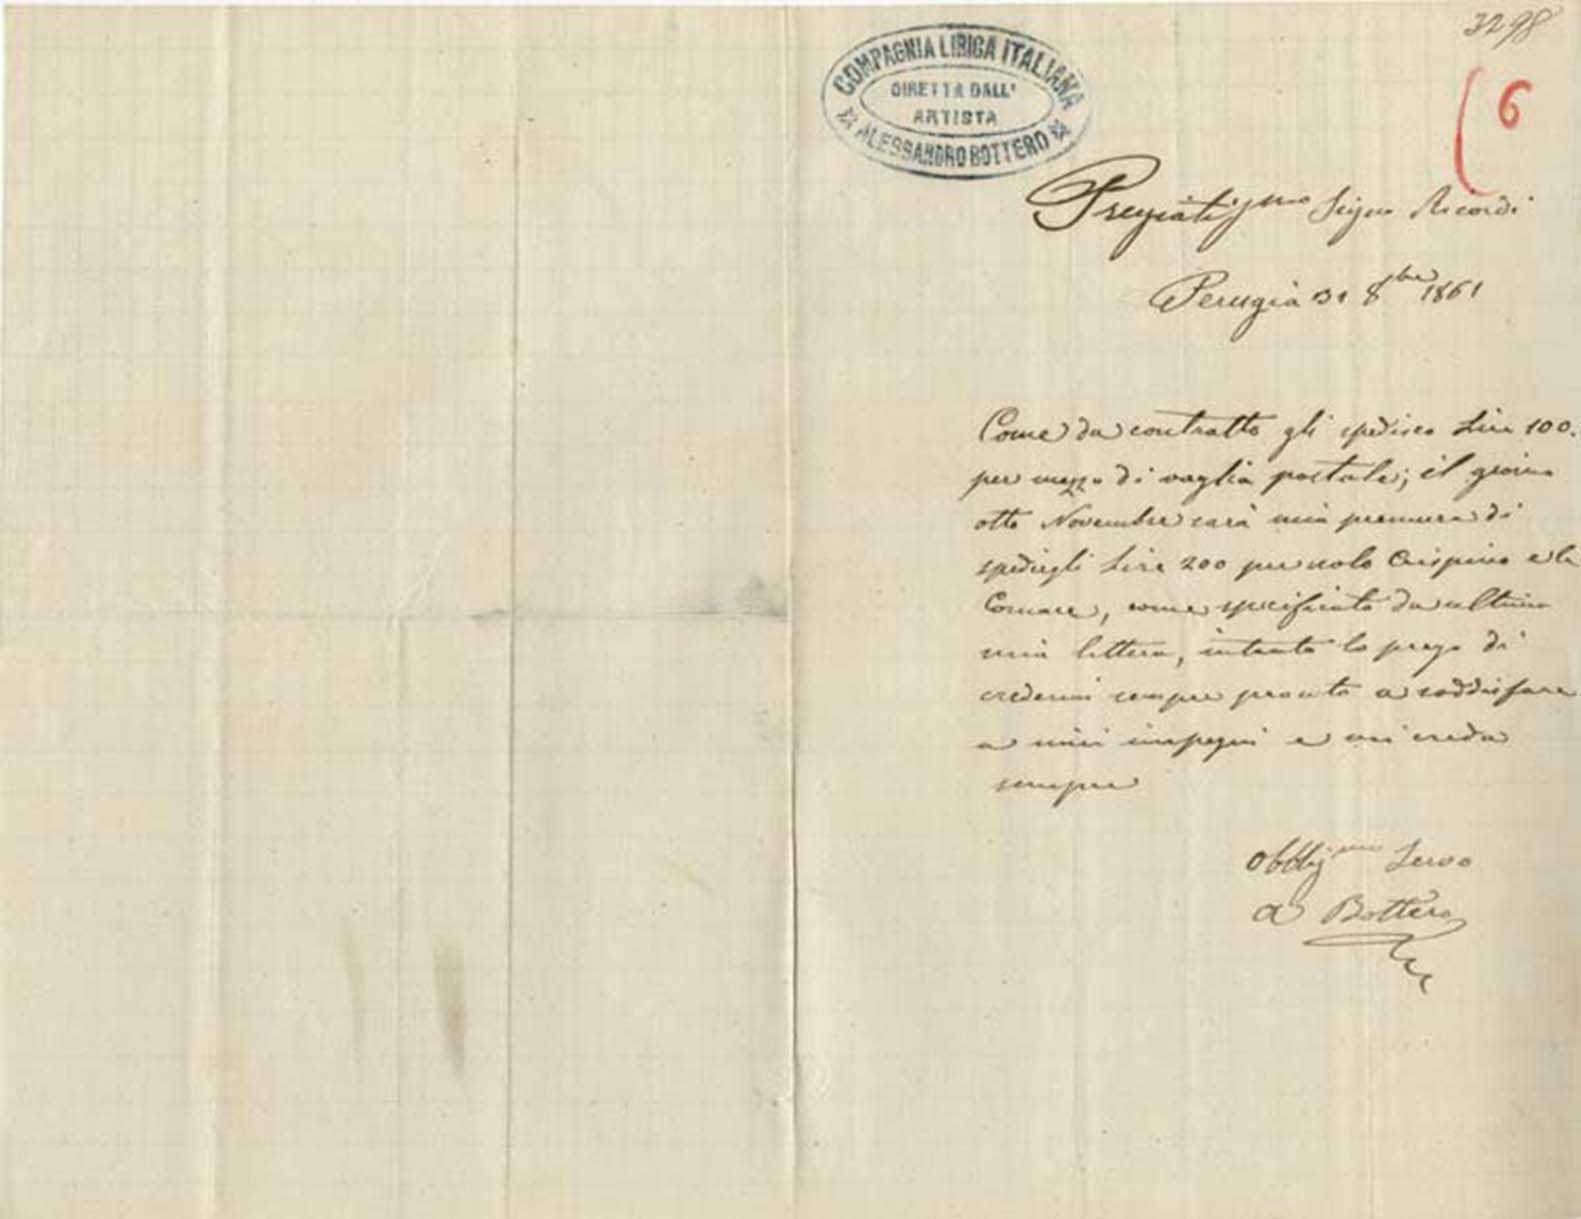 3298
COMPAGNIA LIRICA ITALIANA
DIRETTA DALL'
ARTISTA
ALESSANDRO BOTTERO
6
Pregiatijmo Signor Ricordi
Perugia 31 8bre 1861
Come da contratto gli spedisco Lire 100.
per mezzo di vaglia postale; il giorno
otto Novembre sarà mia premura di
spedirgli Lire 200 per nolo Crispino e la
Comare, come specificato da ultima
mia lettera, intanto la prego di
credermi sempre pronto a soddisfare
a miei impegni e mi creda
sempre
Obbligmo Servo
A Bottero